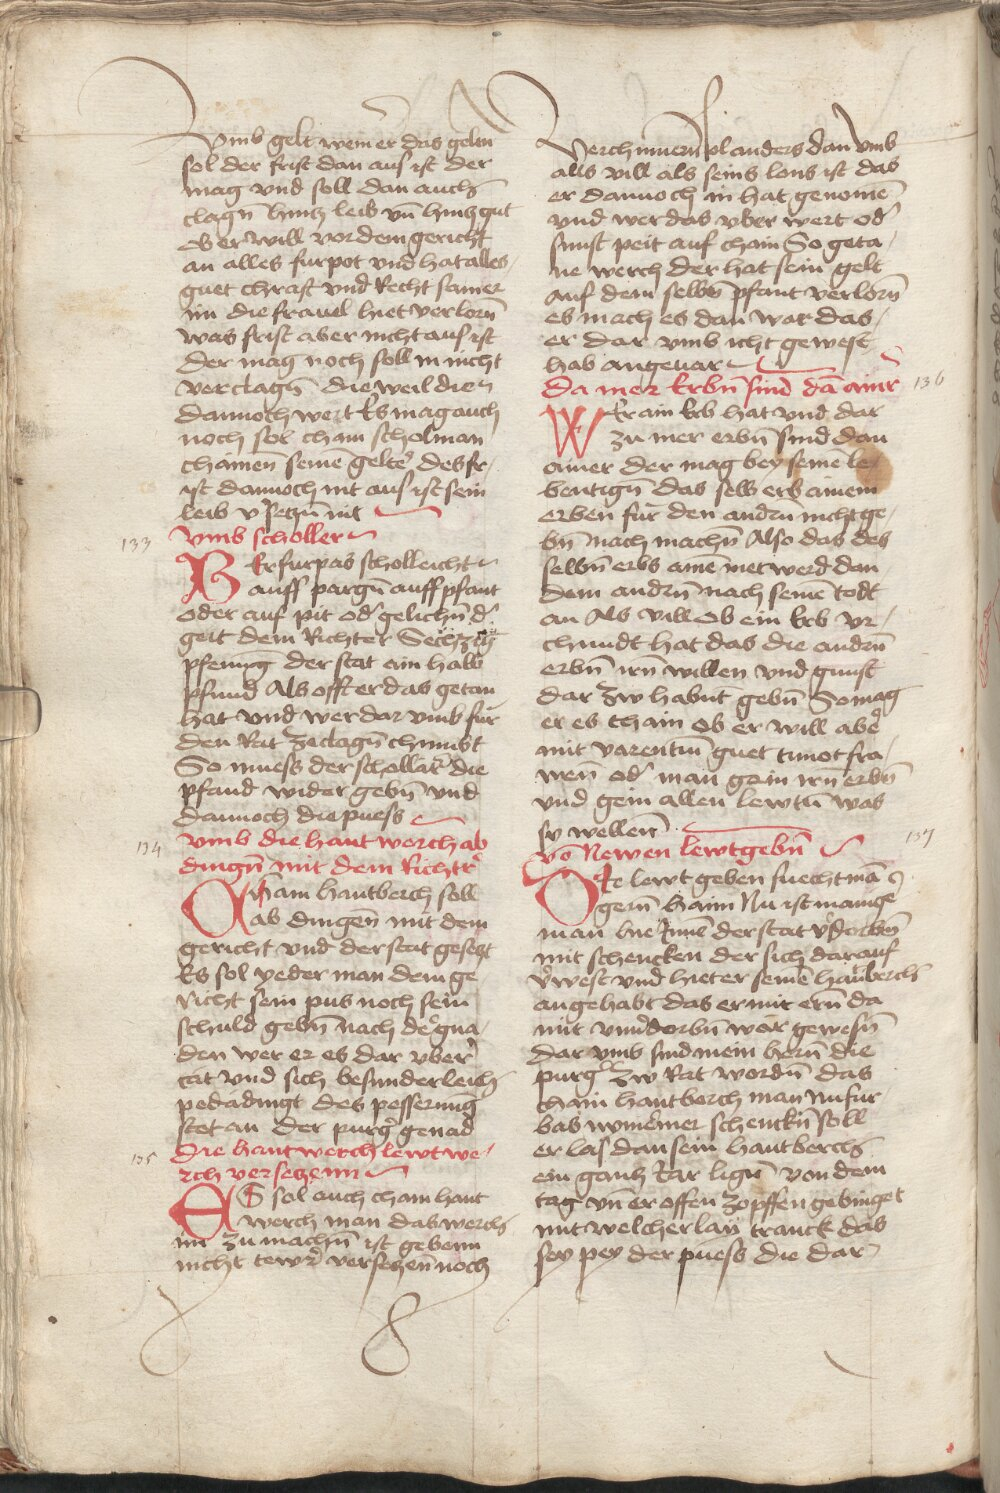 vmb gelt wem er das gelten
sol der frist dan aus ist der
mag vnd soll dan auch
clagn̄ hintz leib vn̄ hintz gut
Ob er will vor dem gericht
an alles furpot vnd hat alles
guet chrafft vnd Recht samer
im die frauel hiet verlorn̄
was frist aber nicht aus ist
der mag noch soll in nicht
verclagn̄ die weil die
dannoch wert Es mag auch
noch sol chain scholman
chainen̄ seinē gelter̄ des fr
ist dannoch nit aus ist sein
leib v̄setzn̄ nit
133
vmb scholler
Er furpas schollecht
auff pargn̄ auff pfant
oder auf pit od̄ gelichn̄ d̄
geit dem Richter Sechzig
pfennīg der stat ain halb
pfund Als offt er das getan
hat vnd wer dar vmb fur
den Rat ze clagn̄ chumbt
So muess der schollar̄ die
pfand wider gebn̄ vnd
dannoch die puess
134
vmb die hant werch ab
dingn̄ mit dem Richtr̄
Chain hantberch soll
ab dingen̄ mit dem
gericht vnd der stat gesetzt
Es sol yeder man dem ge
richt sein pus noch sein
schuld gebn̄ nach der̄ gna
den wer er es dar vber̄
tat vnd sich besunderleich
pedadingt des pesserung
stet an der purgr̄ genad
135
Die hantwerch lewt we
rch versetzenn
Es sol auch chain hant
werch man das werch
im zu machn̄ ist gebenn
nicht tewr̄ versetzen̄ noch
Verchumern̄ vl anders dan vmb
alls vill als seins lons ist das
er dannoch in hat genomē
vnd wer das vber wert od̄
sunst peit auf chain So geta
ne werch der hat sein gelt
auf dem selbn̄ pfant verlorn̄
es mach es dan war das
er dar vmb icht gewest
hab angeuar
136
Da mer Erbn̄ sind dā ainr̄
Er ain Erb hat vnd dar
zu mer erbn̄ sind dan
ainer der mag bey seinē le
bentign̄ das selb erb ainem
erben fur den andrn̄ nicht ge
bn̄ nach machn̄ Also das des
selbn̄ erbs ainē mer werd dan
dem andrn̄ nach seinē todt
an Als vill ob ein Erb vr
chundt hat das die andrn̄
erbn̄ irn willen vnd gunst
dar zw habnt gebn̄ So mag
er es chain ob er will aber̄
mit varentm̄ guet tun ot fra
wen̄ od̄ man gein irn̄ erbn̄
vnd gein allen lewtn̄ was
sy wellen̄
137
vō Newen lewtgebn̄
Re lewt geben suecht mā
gern̄ haim Nu ist manige
man hie Innē der stat v̄dorbn̄
mit schencken der sich darauf
v̄west vnd hiet er seinē hantberch
angehabt das er mit ern̄ da
mit vnuerdorbn̄ wer gewesn̄
Dar vmb sind mein hern̄ die
purḡ zw Rat wordn̄ das
chain hantberch man nu fur
bas nymer̄mer schenckn̄ soll
er las dan sein hantberch
ein gantz Iar lign̄ von dem
tag vn̄ er offen zopffen gebinget
mit welcherlay tranck das
sey pey der puess die dar